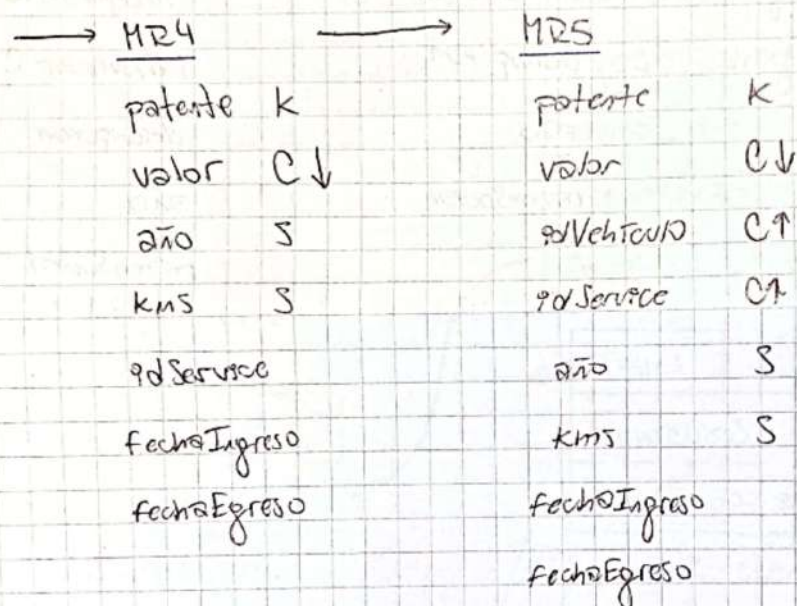 → MR4 → MR5
patente K
valor C↓
año S
kms S
idService
fechaIngreso
fechaEgreso
patente K
valor C↓
idVehículo C↑
idService C↑
año S
kms S
fechaIngreso
fechaEgreso